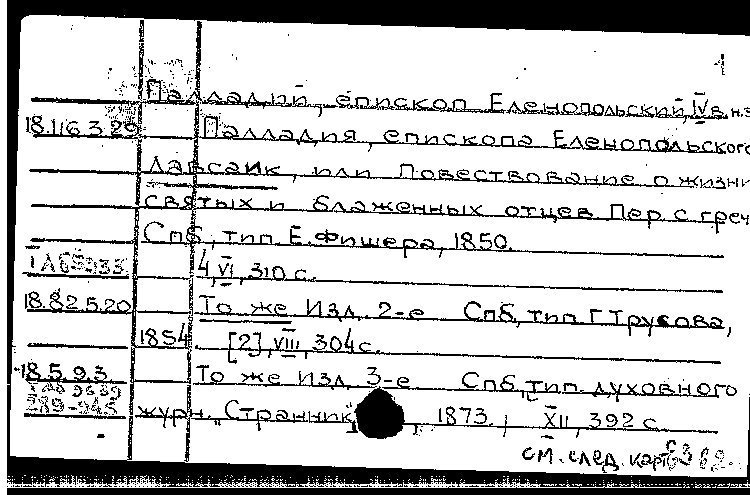 1
Палладий, епископ Еленопольский, IV в. н.э
18.116.3.29 Палладия, епископа Еленопольского
Лавсаик, или Повествование о жизни
святых и блаженных отцев Пер. с греч
Спб, тип. Е. Фишера, 1850.
4, VI, 310 с.
18.82.5.20 То же Изд. 2-е Спб, тип Г Трусова,
1854. [2], VIII, 304 с.
18.5.9.3 То же Изд. 3-е Спб, тип. духовного
журн. „Странник", 1873. XII, 392 с.
см. след. карт